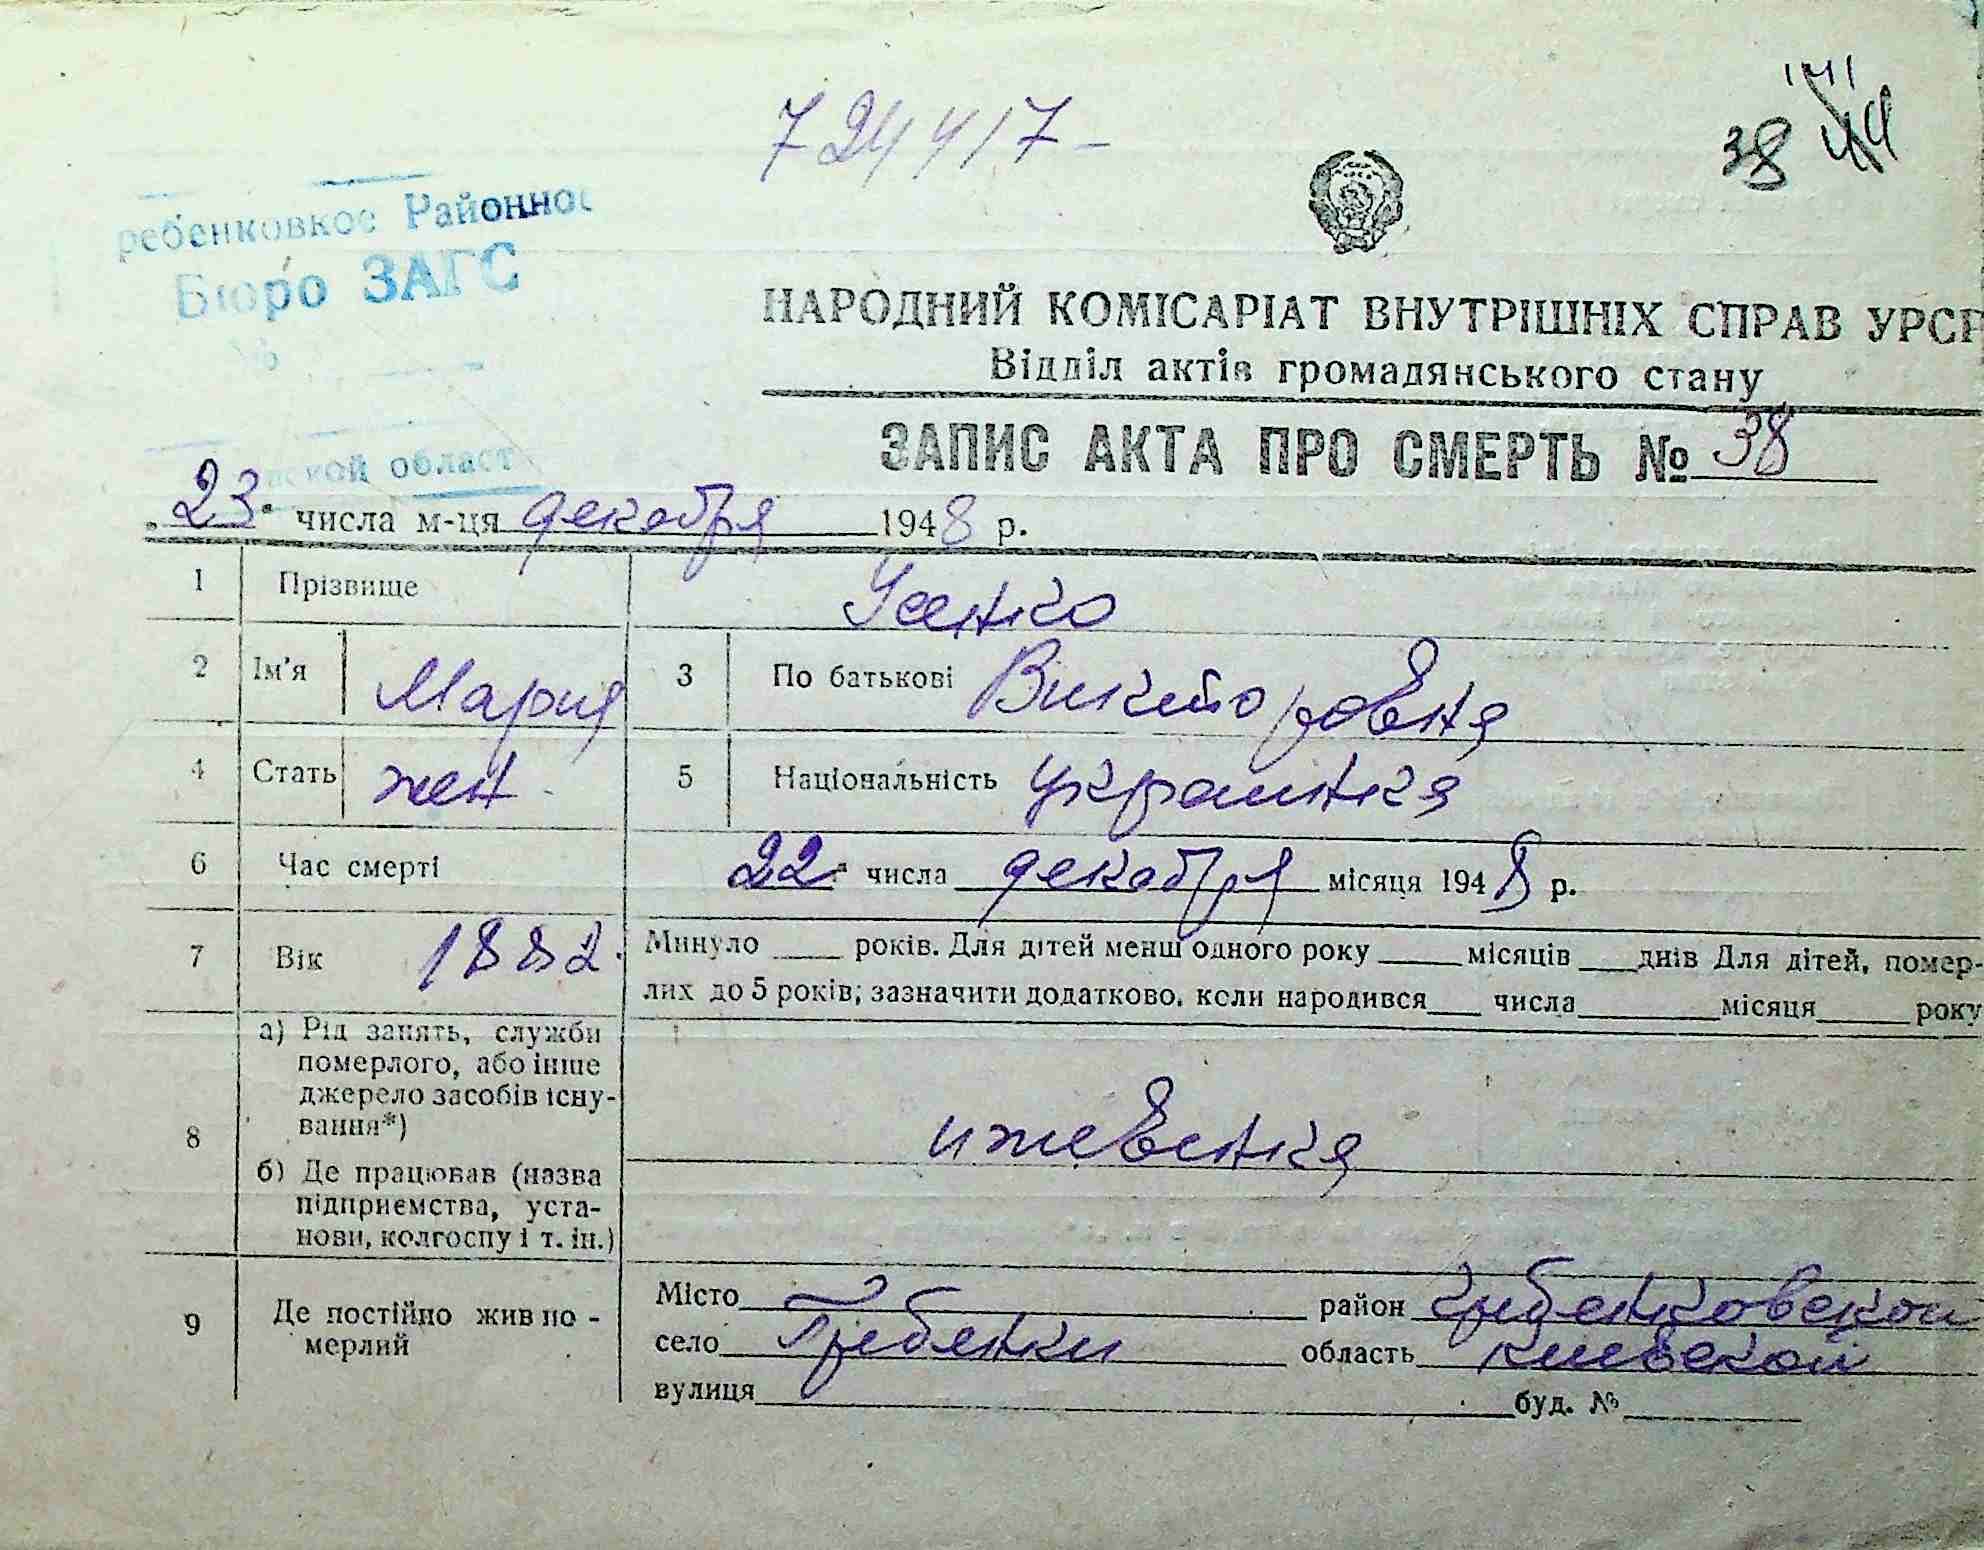 724417-
141
38 44
ребенковкое Районное
Бюро ЗАГС
НАРОДНИЙ КОМІСАРІАТ ВНУТРІШНІХ СПРАВ УРСР
Відділ актів громадянського стану
ЗАПИС АКТА ПРО СМЕРТЬ № 38
ской област
„23" числа м-ця декабря 1948 р.
1 Прізвище Усенко
2 Ім'я Мария 3 По батькові Викторовна
4 Стать жен. 5 Національність украинка
6 Час смерті 22" числа декабря місяця 1948 р.
7 Вік 1882. Минуло ____ років. Для дітей менш одного року ____ місяців ____ днів Для дітей, помер-
лих до 5 років; зазначити додатково, коли народився ____ числа ____ місяця ____ року
8 а) Рід занять, служби
померлого, або інше
джерело засобів існу-
вання*)
ижевенка
б) Де працював (назва
підприємства, уста-
нови, колгоспу і т. ін.)
9 Де постійно жив по-
мерлий
Місто ____ район Гребенковской
село Гребенки область Киевской
вулиця ____ буд. № ____